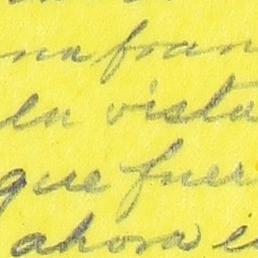 na fran
en vista
que fuer
ahora e